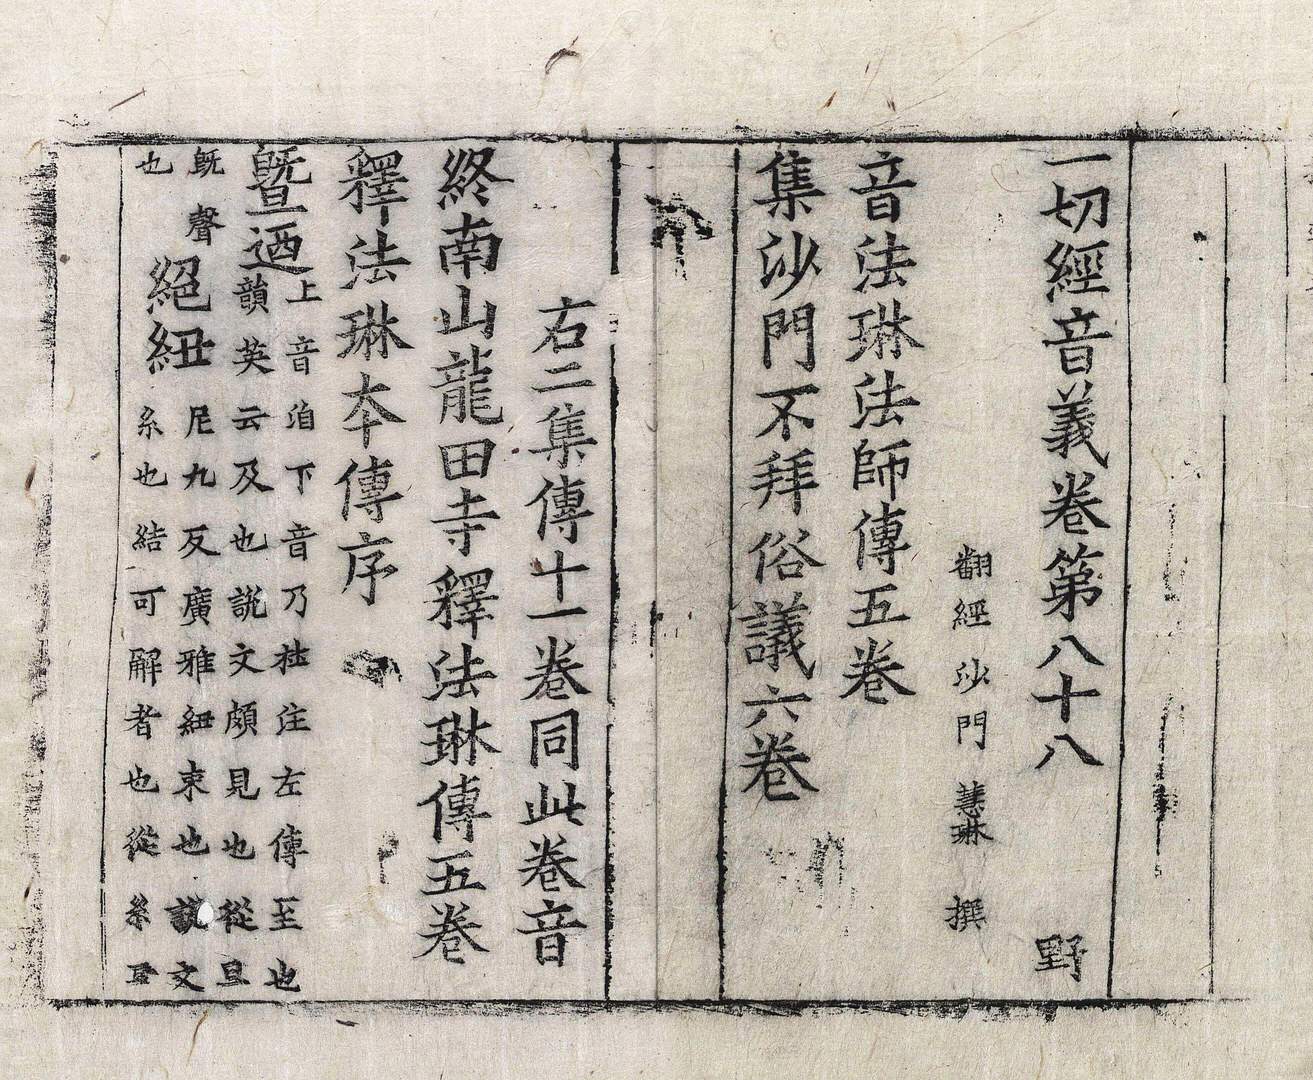 一切經音義卷第八十八　野
翻經沙門慧琳撰
音法琳法師傳五卷
集沙門不拜俗議六卷
右二集傳十一卷同此卷音
終南山龍田寺釋法琳傳五卷
釋法琳本傳序
暨迺
上音洎下音乃杜注左傳至也
韻英云及也說文頗見也從旦
旣聲
也
絕紐
尼九反廣雅紐束也說文
糸也結可解者也從糸丑